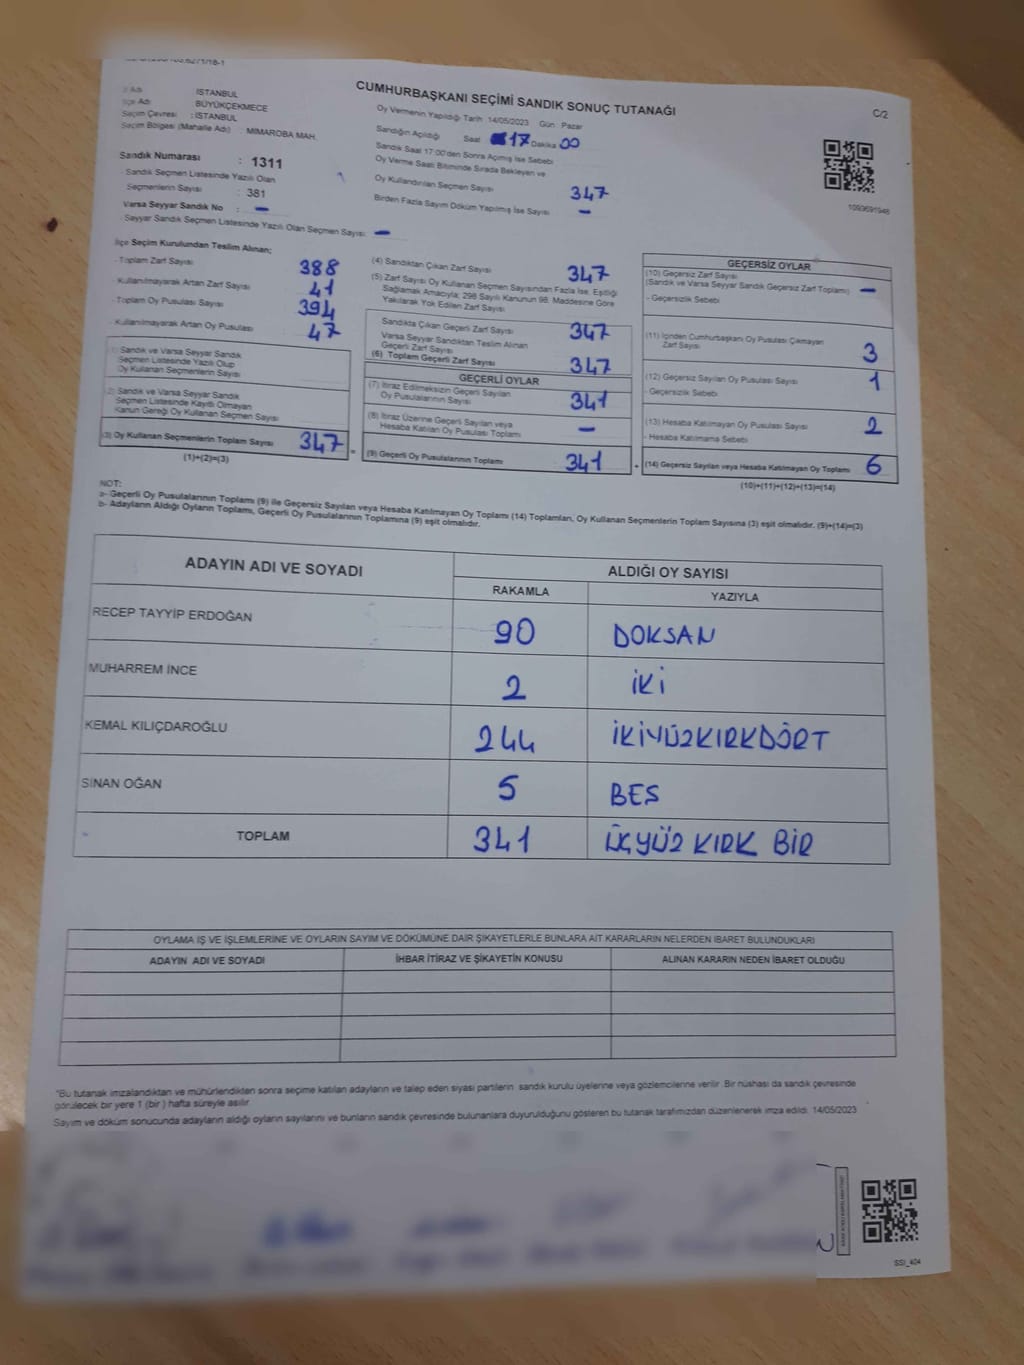 CUMHURBAŞKANI SEÇİMİ SANDIK SONUÇ TUTANAĞI
C/2
İl Adı İSTANBUL
İlçe Adı BÜYÜKÇEKMECE
Seçim Çevresi : İSTANBUL
Seçim Bölgesi (Mahalle Adı) : MİMAROBA MAH.
Sandık Numarası : 1311
Sandık Seçmen Listesinde Yazılı Olan
Seçmenlerin Sayısı : 381
Varsa Seyyar Sandık No : -
Sayyar Sandık Seçmen Listesinde Yazılı Olan Seçmen Sayısı -
Oy Vermenin Yapıldığı Tarih 14/05/2023 Gün : Pazar
Sandığın Açıldığı Saat 17 Dakika 00
Sandık Saat 17:00'den Sonra Açımış İse Sebebi
Oy Verme Saati Bitiminde Sırada Bekleyen ve
Oy Kullandırılan Seçmen Sayısı 347
Birden Fazla Sayım Döküm Yapılmış İse Sayısı -
1093691948
İlçe Seçim Kurulundan Teslim Alınan;
- Toplam Zarf Sayısı 388
- Kullanılmayarak Artan Zarf Sayısı 41
- Toplam Oy Pusulası Sayısı 394
- Kullanılmayarak Artan Oy Pusulası 47
(1) Sandık ve Varsa Seyyar Sandık
Seçmen Listesinde Yazılı Olup
Oy Kullanan Seçmenlerin Sayısı
(2) Sandık ve Varsa Seyyar Sandık
Seçmen Listesinde Kayıtlı Olmayan
Kanun Gereği Oy Kullanan Seçmen Sayısı
(3) Oy Kullanan Seçmenlerin Toplam Sayısı 347
(1)+(2)=(3)
(4) Sandıktan Çıkan Zarf Sayısı 347
(5) Zarf Sayısı Oy Kullanan Seçmen Sayısından Fazla İse, Eşitliği
Sağlamak Amacıyla; 298 Sayılı Kanunun 98. Maddesine Göre
Yakılarak Yok Edilen Zarf Sayısı
Sandıkta Çıkan Geçerli Zarf Sayısı 347
Varsa Seyyar Sandıktan Teslim Alınan
Geçerli Zarf Sayısı
(6) Toplam Geçerli Zarf Sayısı 347
GEÇERLİ OYLAR
(7) İtiraz Edilmeksizin Geçerli Sayılan
Oy Pusulalarının Sayısı 341
(8) İtiraz Üzerine Geçerli Sayılan veya
Hesaba Katılan Oy Pusulası Toplamı -
(9) Geçerli Oy Pusulalarının Toplamı 341
GEÇERSİZ OYLAR
(10) Geçersiz Zarf Sayısı
(Sandık ve Varsa Seyyar Sandık Geçersiz Zarf Toplamı) -
- Geçersizlik Sebebi
(11) İçinden Cumhurbaşkanı Oy Pusulası Çıkmayan
Zarf Sayısı 3
(12) Geçersiz Sayılan Oy Pusulası Sayısı 1
- Geçersizlik Sebebi
(13) Hesaba Katılmayan Oy Pusulası Sayısı 2
- Hesaba Katılmama Sebebi
(14) Geçersiz Sayılan veya Hesaba Katılmayan Oy Toplamı 6
(10)+(11)+(12)+(13)=(14)
NOT:
a- Geçerli Oy Pusulalarının Toplamı (9) ile Geçersiz Sayılan veya Hesaba Katılmayan Oy Toplamı (14) Toplamları, Oy Kullanan Seçmenlerin Toplam Sayısına (3) eşit olmalıdır. (9)+(14)=(3)
b- Adayların Aldığı Oyların Toplamı, Geçerli Oy Pusulalarının Toplamına (9) eşit olmalıdır.
ADAYIN ADI VE SOYADI ALDIĞI OY SAYISI
RAKAMLA YAZIYLA
RECEP TAYYİP ERDOĞAN 90 DOKSAN
MUHARREM İNCE 2 İKİ
KEMAL KILIÇDAROĞLU 244 İKİYÜZKIRKDÖRT
SİNAN OĞAN 5 BES
TOPLAM 341 ÜÇYÜZ KIRK BİR
OYLAMA İŞ VE İŞLEMLERİNE VE OYLARIN SAYIM VE DÖKÜMÜNE DAİR ŞİKAYETLERLE BUNLARA AİT KARARLARIN NELERDEN İBARET BULUNDUKLARI
ADAYIN ADI VE SOYADI İHBAR İTİRAZ VE ŞİKAYETİN KONUSU ALINAN KARARIN NEDEN İBARET OLDUĞU
"Bu tutanak imzalandıktan ve mühürlendikten sonra seçime katılan adayların ve talep eden siyasi partilerin sandık kurulu üyelerine veya gözlemcilerine verilir. Bir nüshası da sandık çevresinde
görülecek bir yere 1 (bir) hafta süreyle asılır.
Sayım ve döküm sonucunda adayların aldığı oyların sayılarını ve bunların sandık çevresinde bulunanlara duyurulduğunu gösteren bu tutanak tarafımızdan düzenlenerek imza edildi. 14/05/2023
SSI_404